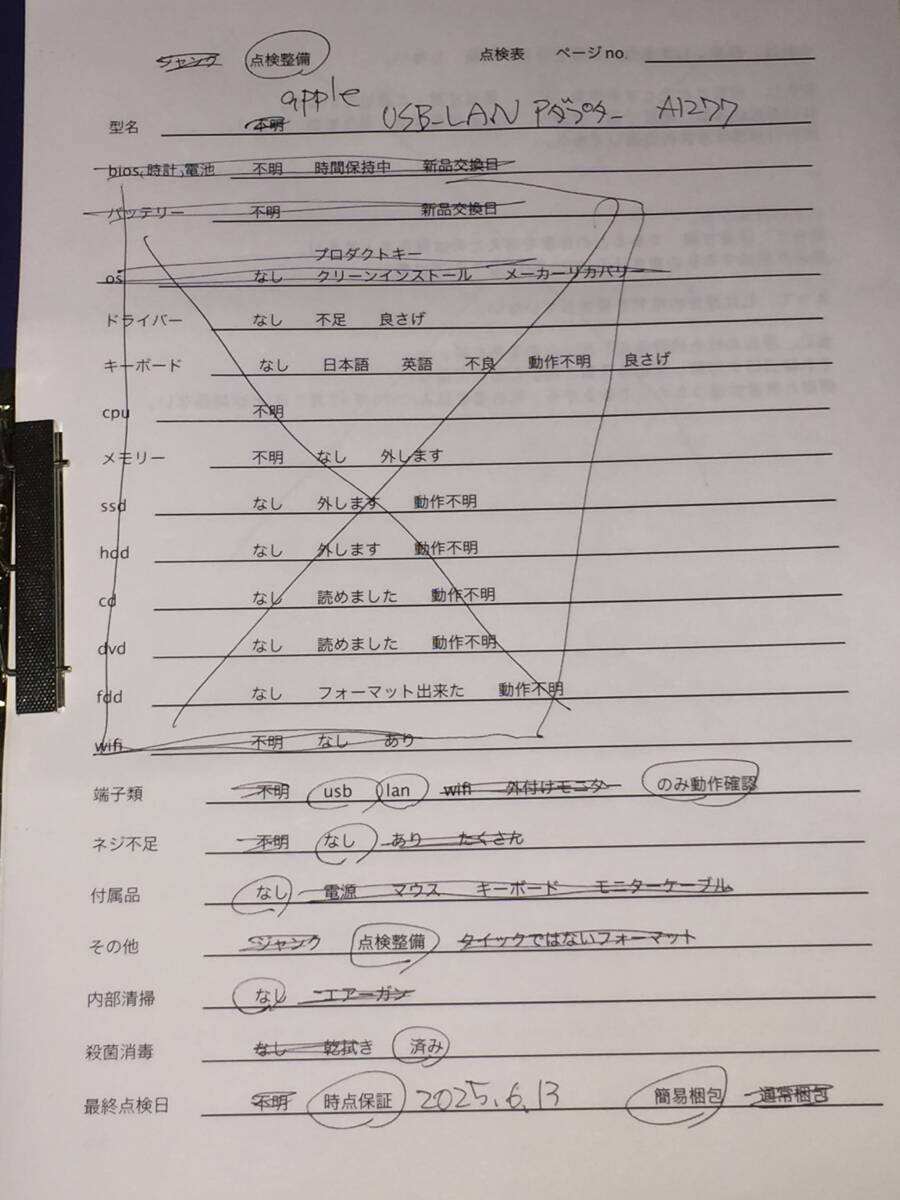 ジャンク 点検整備 点検表 ページno
apple
型名 不明 USB-LAN アダプター A1277
bios,時計,電池 不明 時間保持中 新品交換日
バッテリー 不明 新品交換日
プロダクトキー
os なし クリーンインストール メーカーリカバリー
ドライバー なし 不足 良さげ
キーボード なし 日本語 英語 不良 動作不明 良さげ
cpu 不明
メモリー 不明 なし 外します
ssd なし 外します 動作不明
hdd なし 外します 動作不明
cd なし 読めました 動作不明
dvd なし 読めました 動作不明
fdd なし フォーマット出来た 動作不明
wifi 不明 なし あり
端子類 不明 usb lan wifi 外付けモニタ のみ動作確認
ネジ不足 不明 なし あり たくさん
付属品 なし 電源 マウス キーボード モニターケーブル
その他 ジャンク 点検整備 クイックではないフォーマット
内部清掃 なし エアーガン
殺菌消毒 なし 乾拭き 済み
最終点検日 不明 時点保証 2025.6.13 簡易梱包 通常梱包